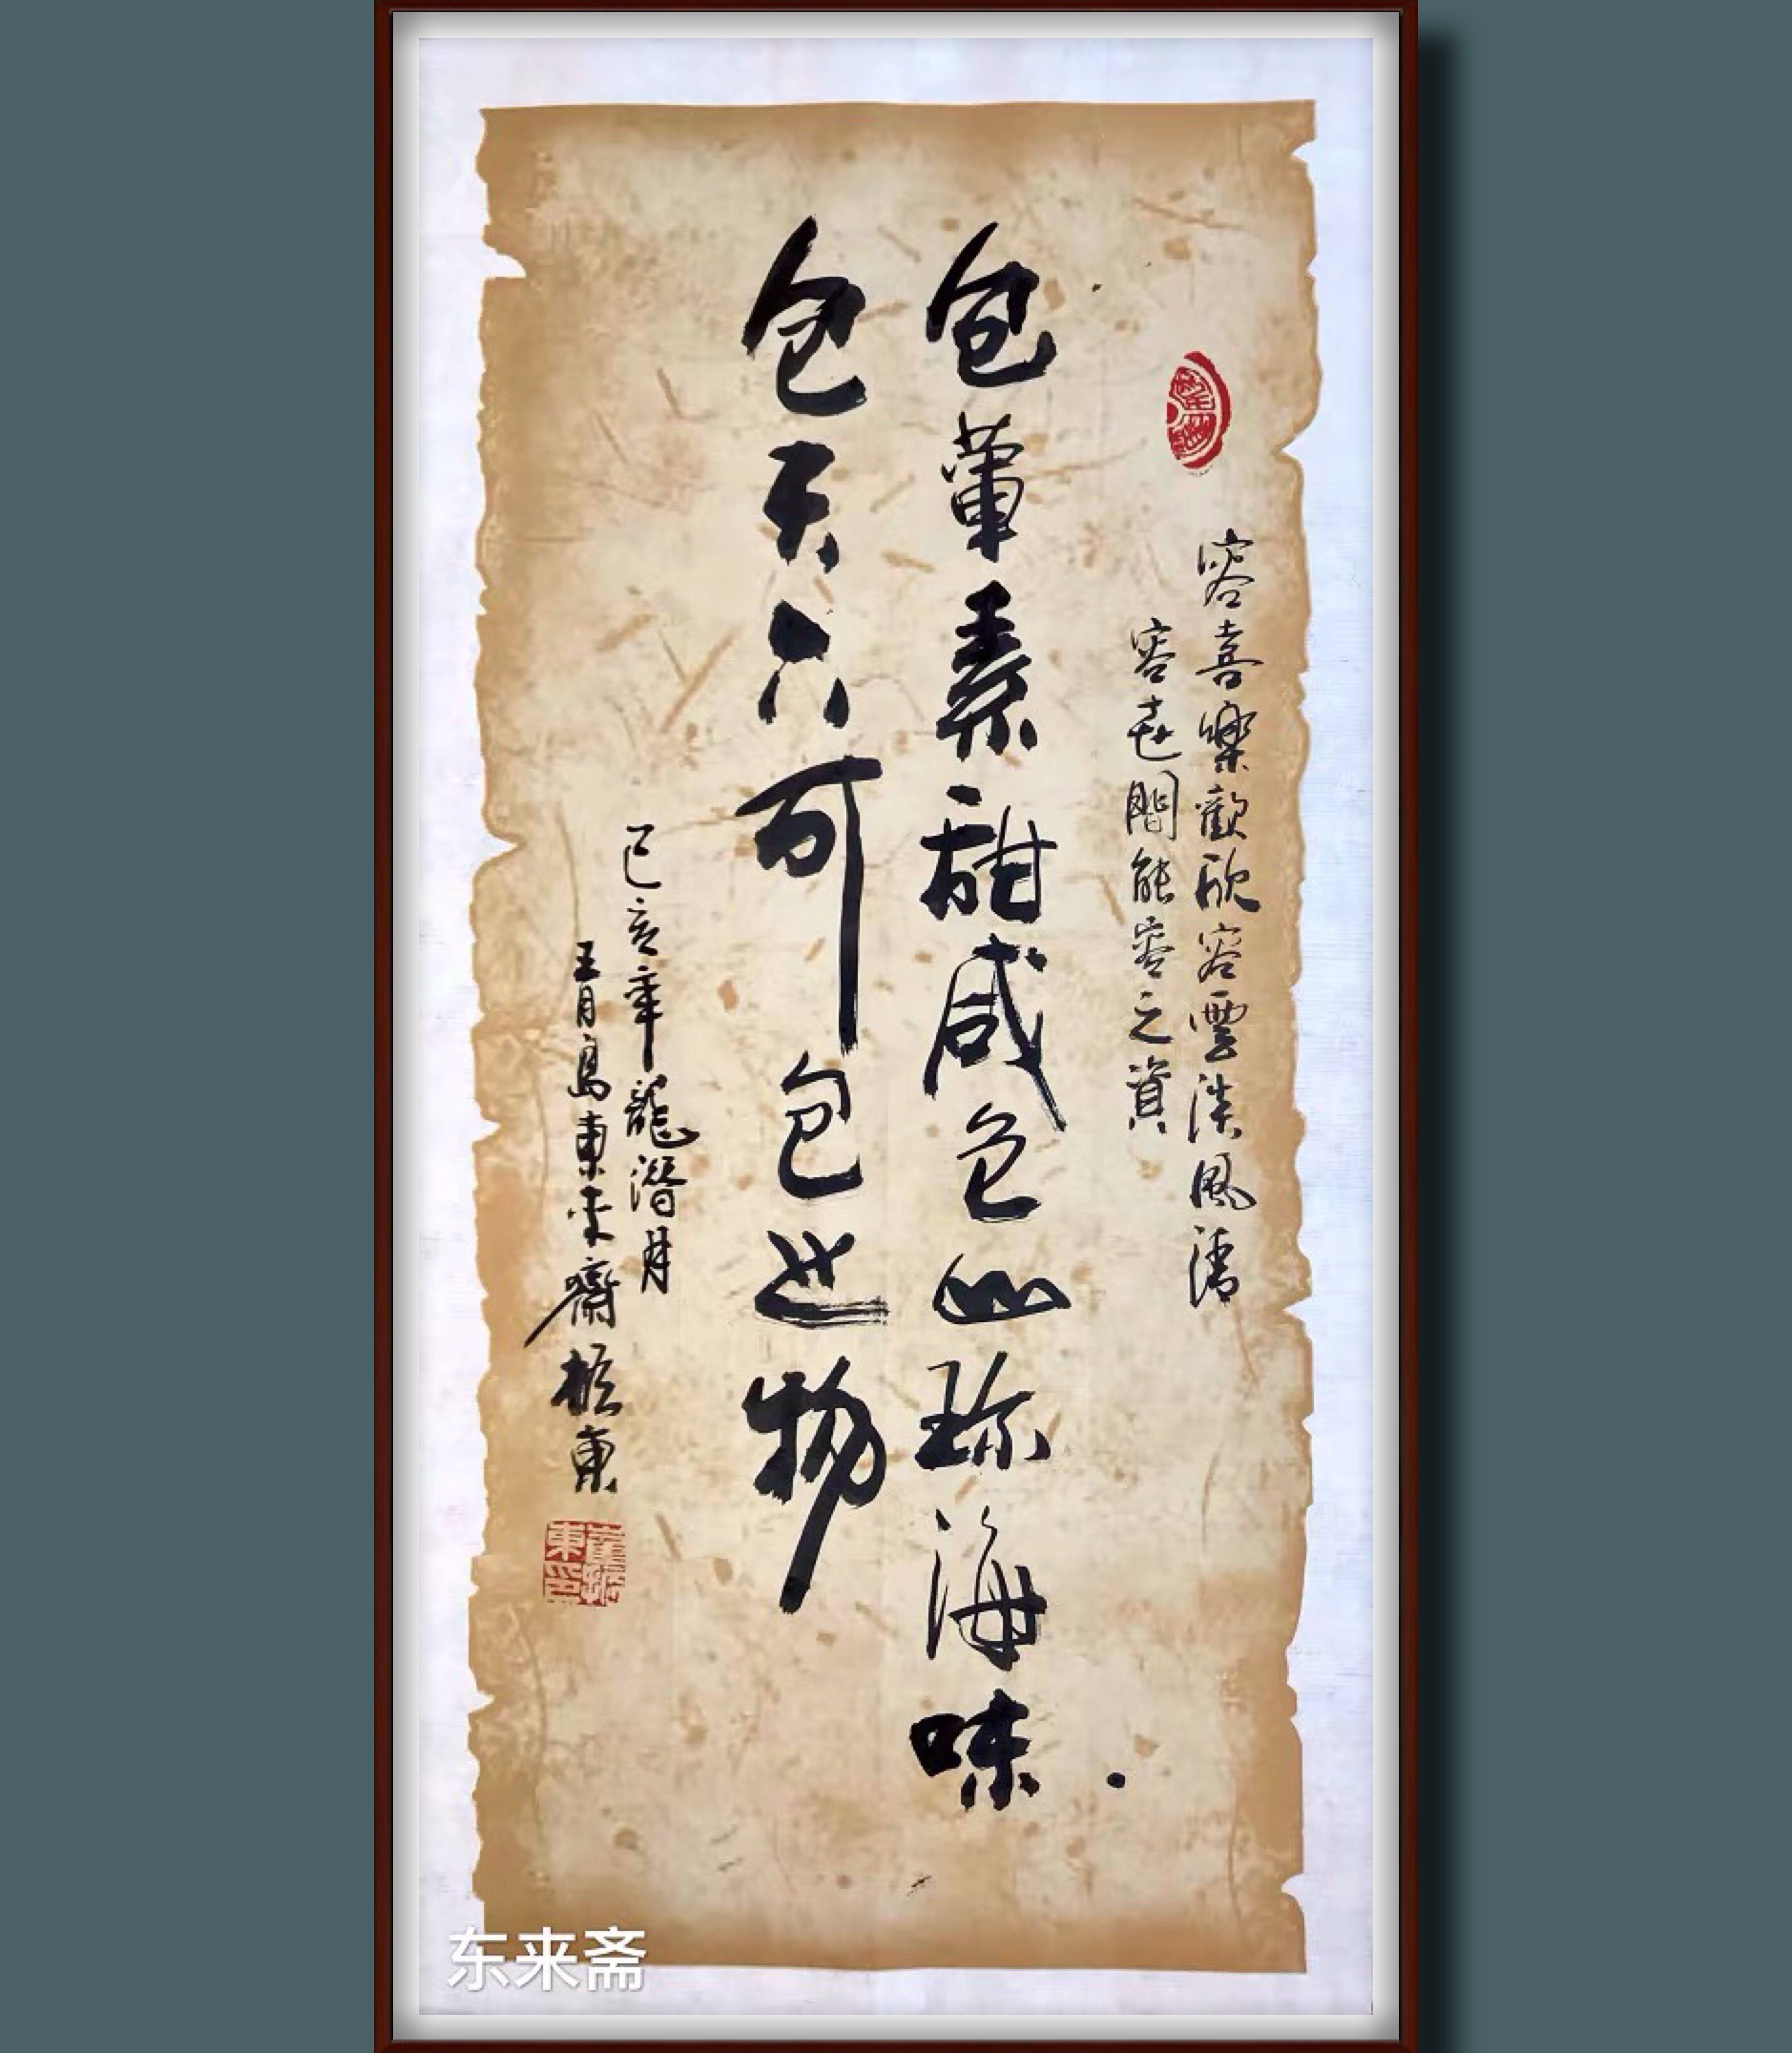 容喜樂歡欣容雲淡風清
容世間能容之資
包葷素甜咸包山珍海味
包天下可包之物
己亥年龍潛月
青島東来齋振東
东来斋